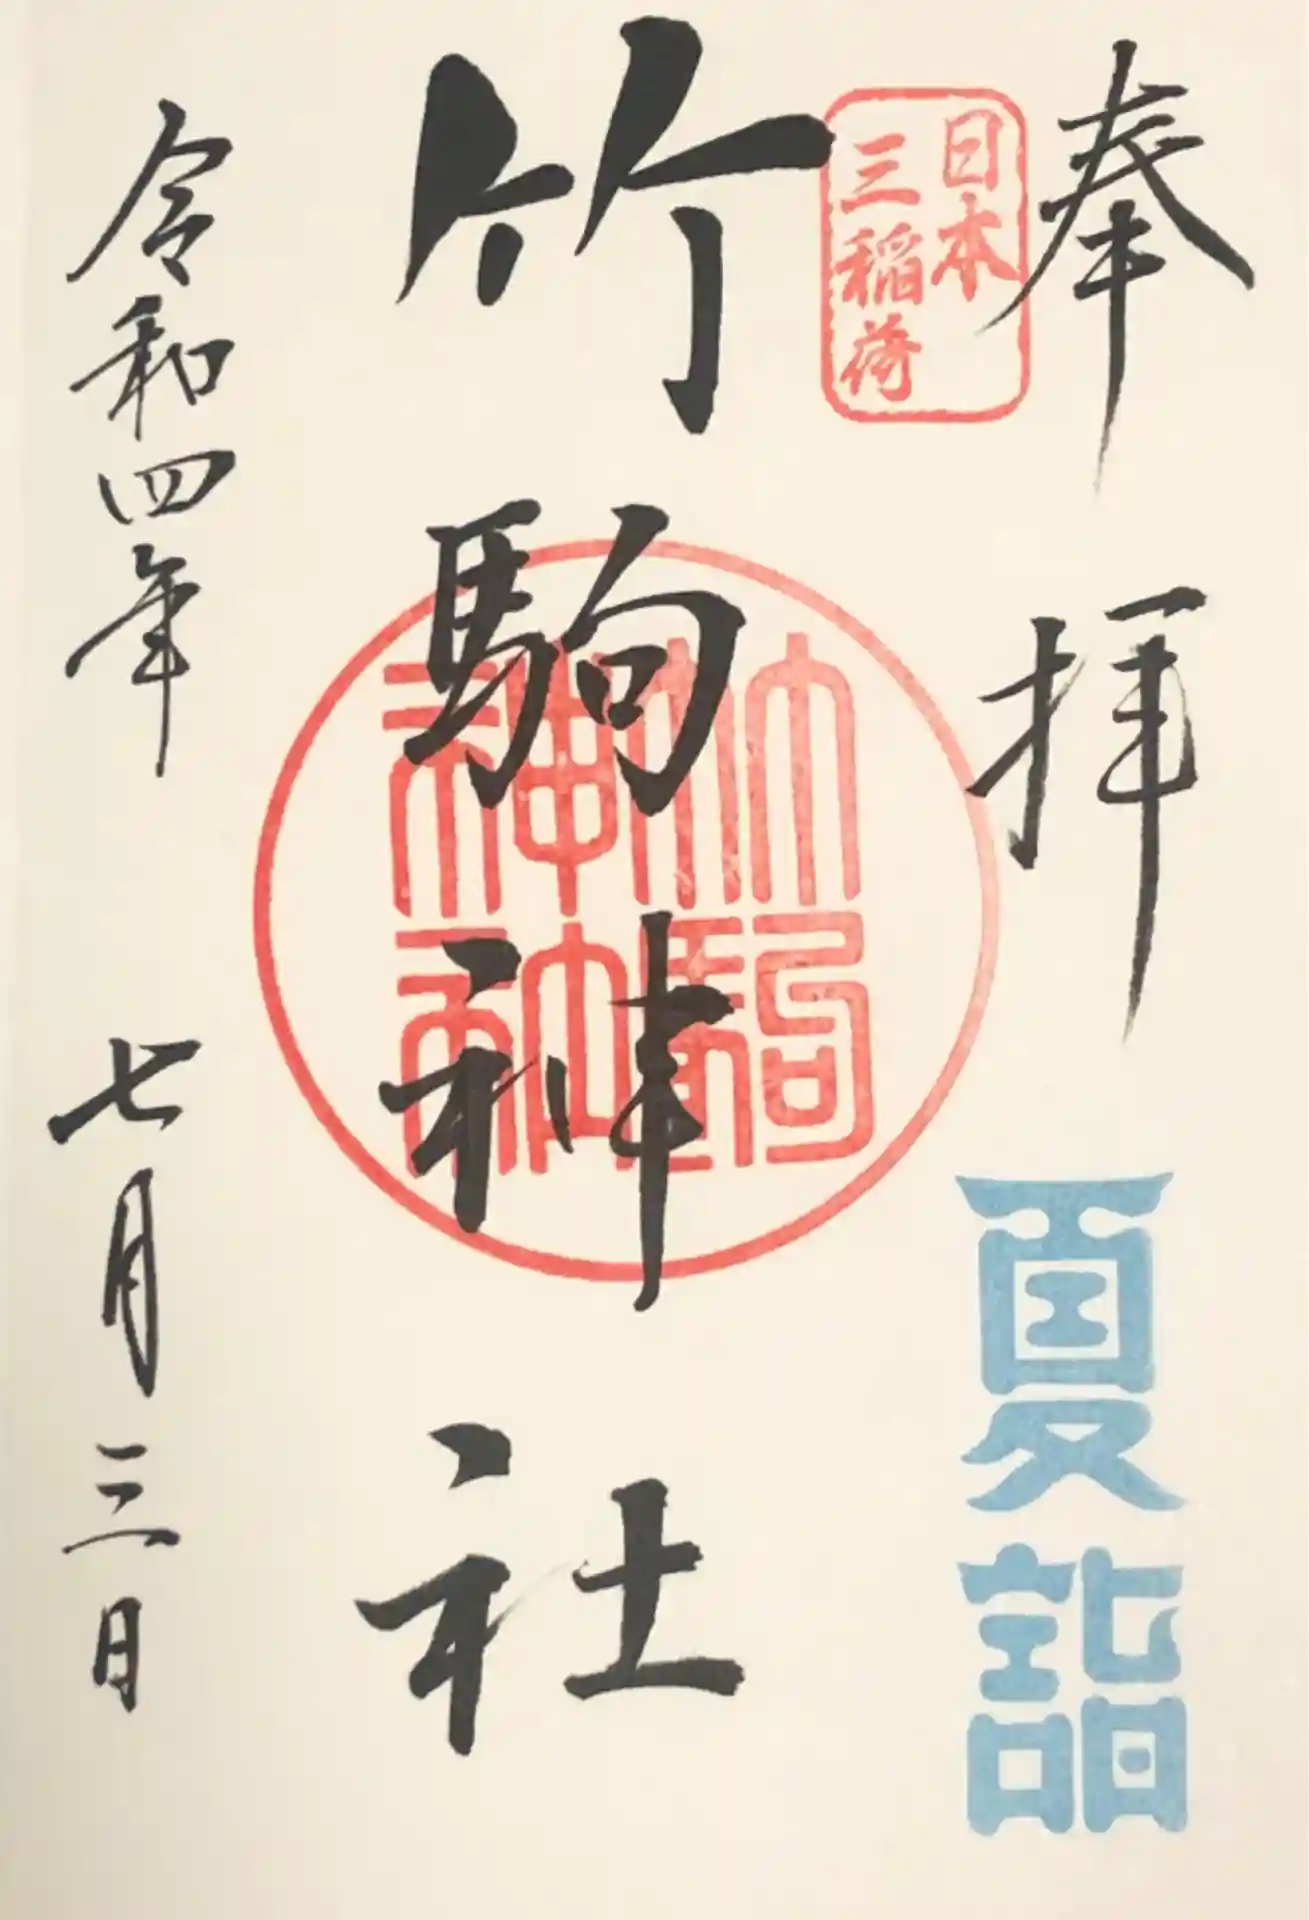 奉拝
日本
三稲荷
夏詣
竹駒神社
竹駒
神社
令和四年 七月三日